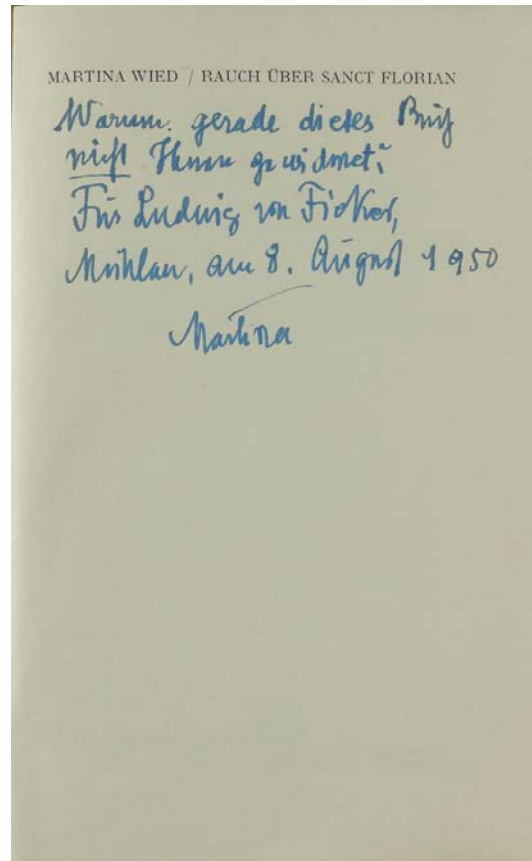 MARTINA WIED / RAUCH ÜBER SANCT FLORIAN
Warum gerade dieses Buch
nicht Ihnen gewidmet?
Für Ludwig von Ficker,
Mühlau, am 8. August 1950
Martina